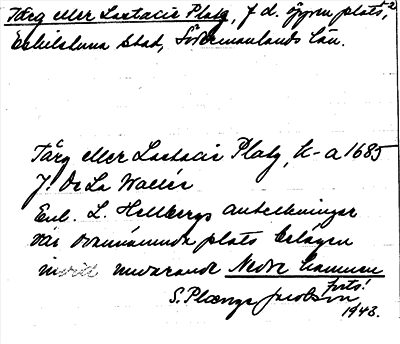 Tärg eller Lastacie Platz, f.d. öppen plats,
Eskilstuna Stad, Södermanlands Län.
Tärg eller Lastacie Platz, K-a 1685
J. De La Vallée
Enl. L. Hellbergs anteckningar
var ovannämnda plats belägen
invid nuvarande Nedre hamnen
forts!
S. Plænge Jacobson
1943.